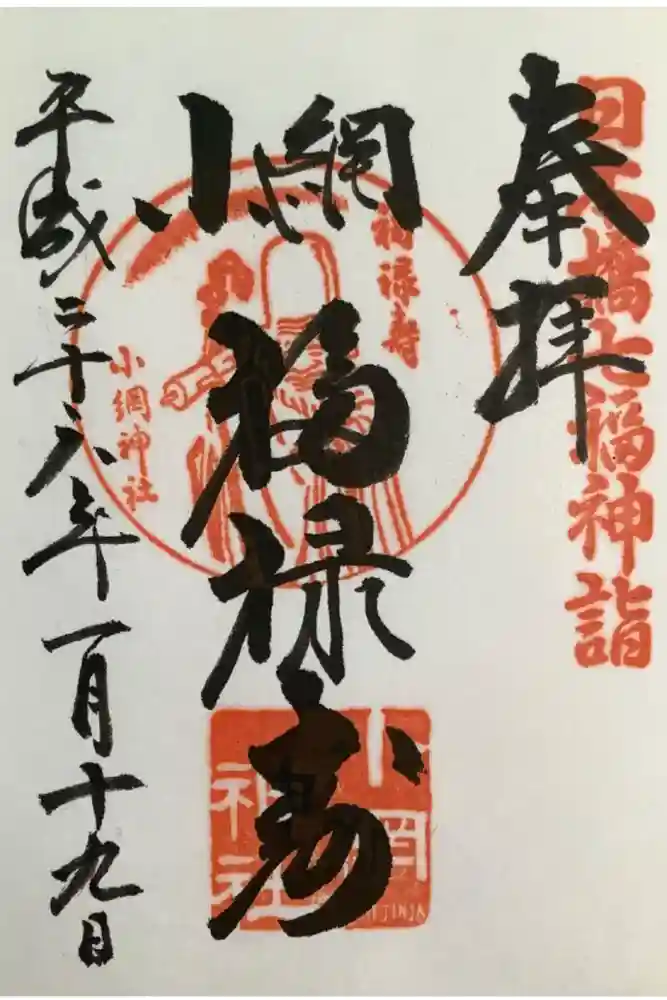 日本橋七福神詣
奉拝
小網
福禄寿
福禄寿
小網神社
小網神社
JINJA
平成二十八年一月十九日